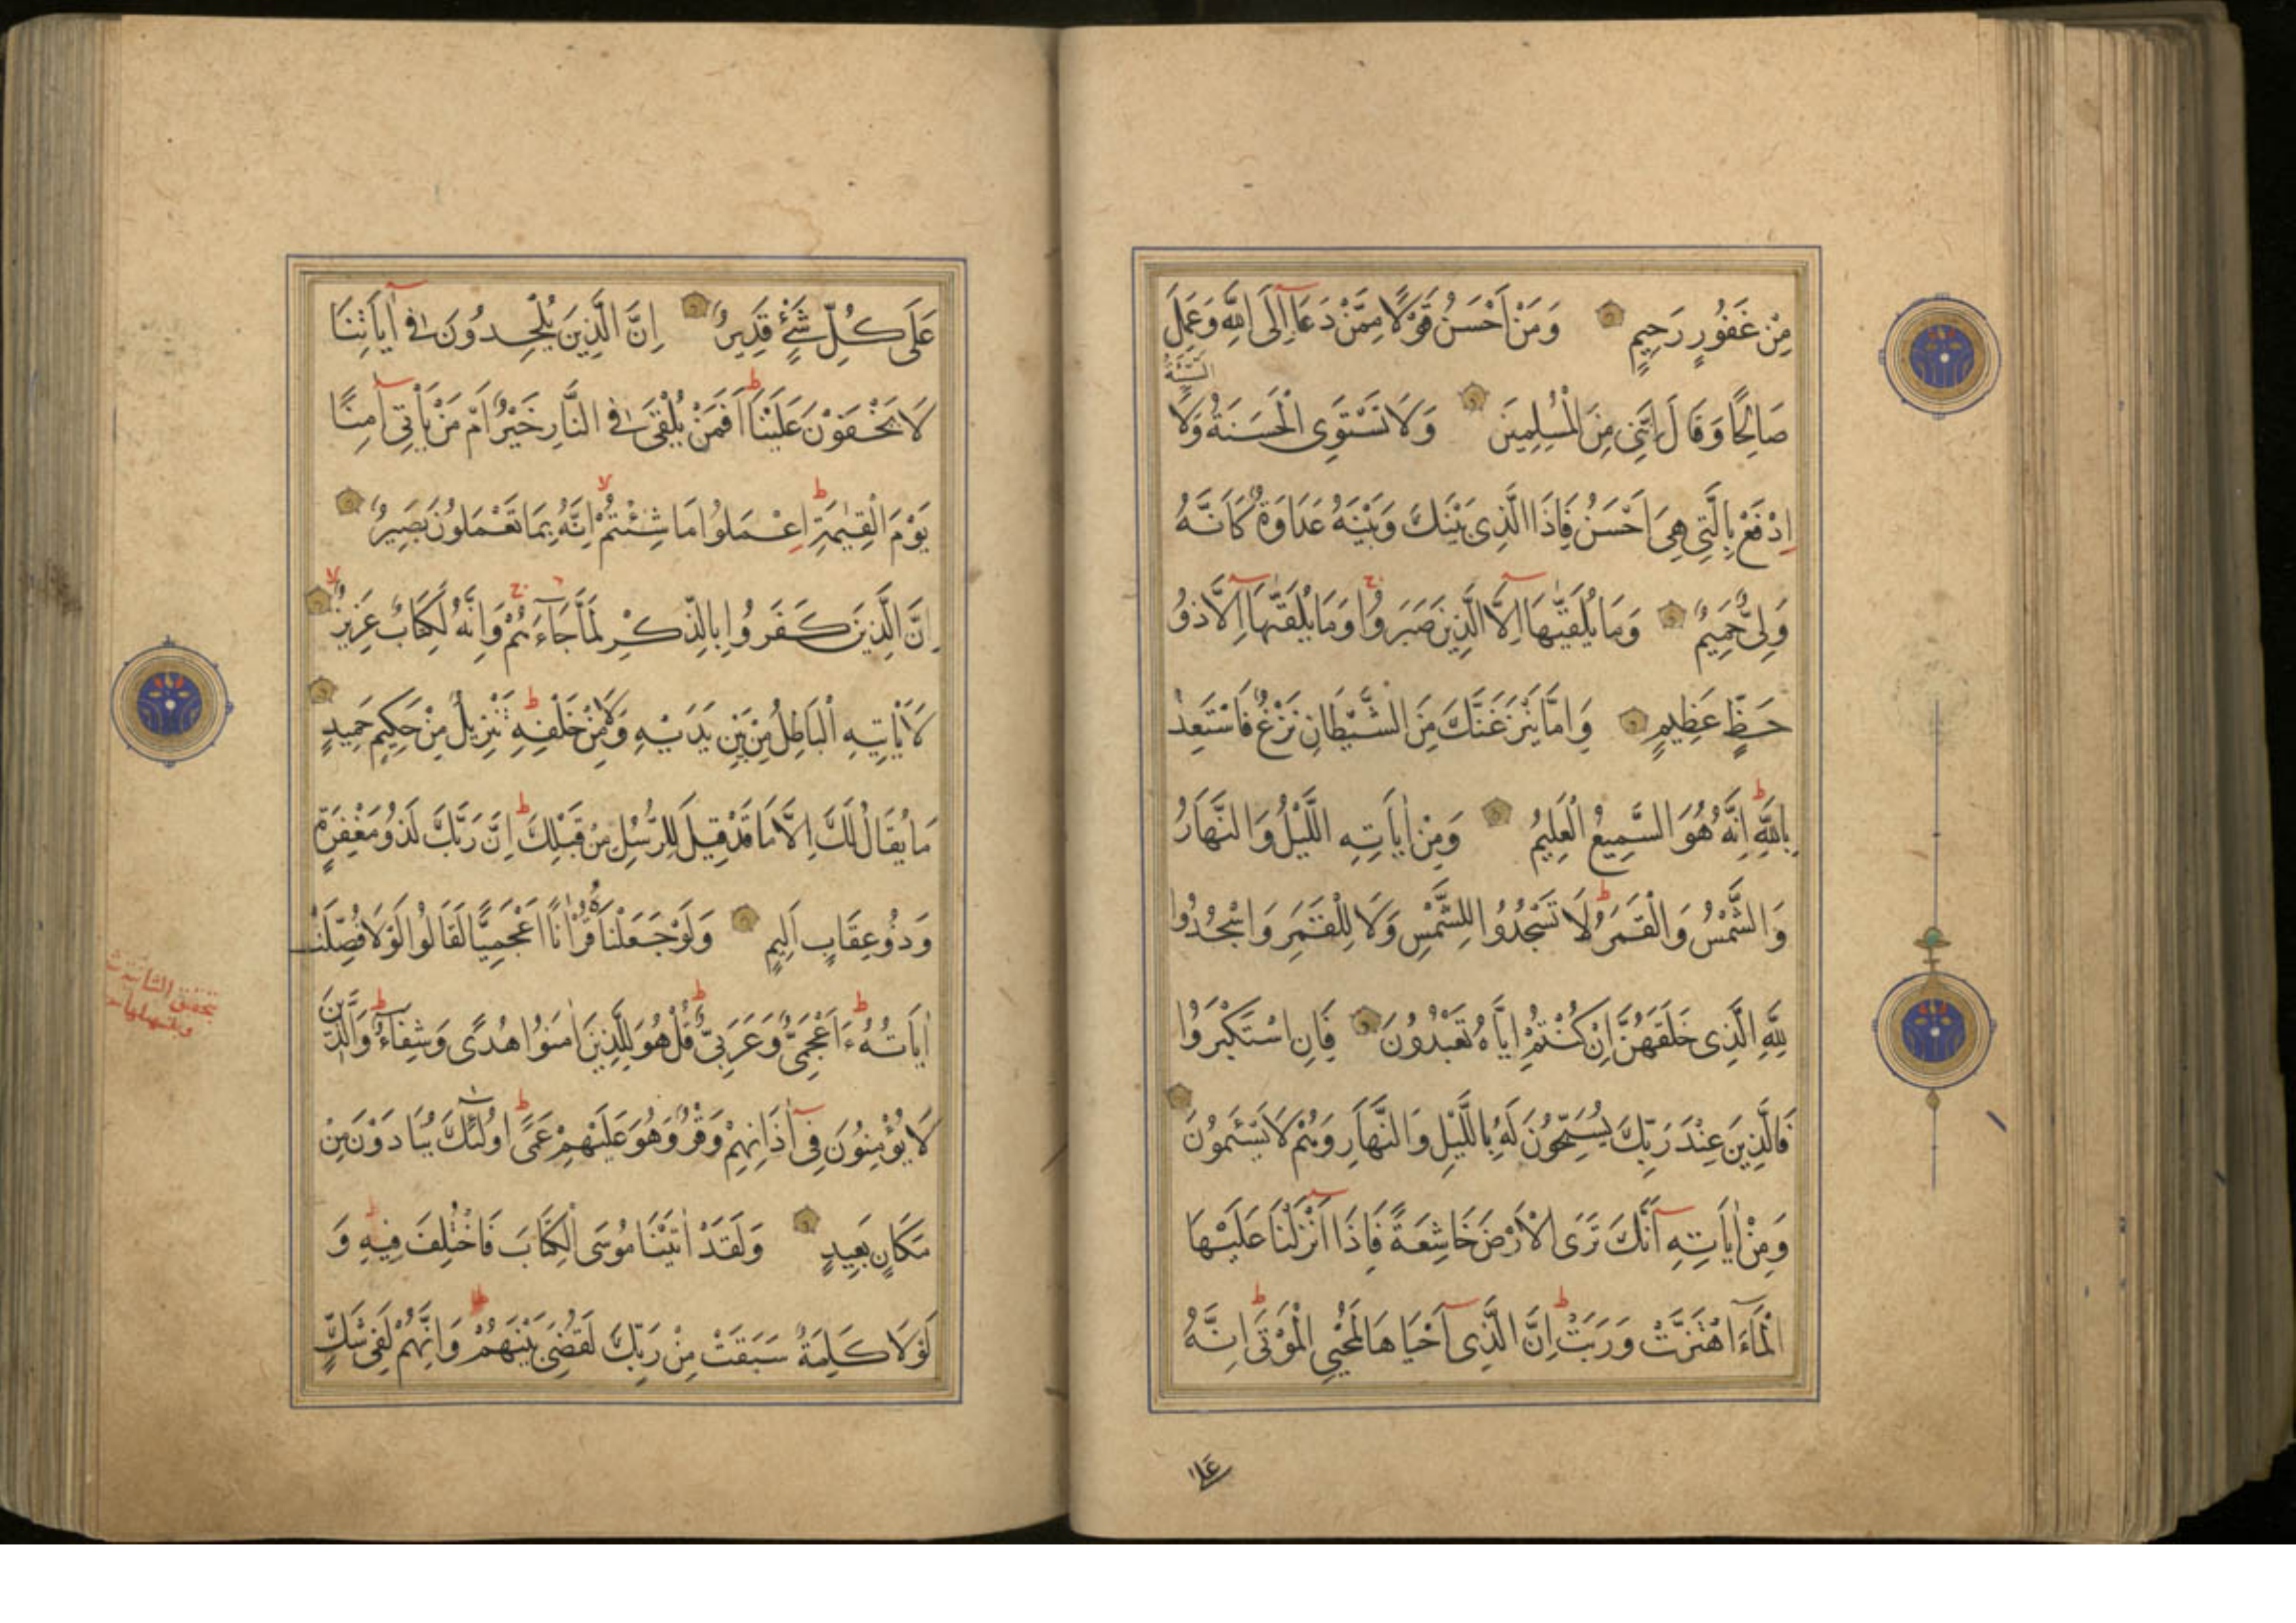 مِنْ غَفُورٍ رَحِيمٍ وَمَنْ اَحْسَنُ قَوْلًا مِمَّنْ دَعَا اِلَى اللهِ وَعَمِلَ
السَّيِّئَةُ
صَالِحًا وَقَالَ اِنَّنِى مِنَ الْمُسْلِمِينَ وَلَا تَسْتَوِى الْحَسَنَةُ وَلَا
اِدْفَعْ بِالَّتِى هِىَ اَحْسَنُ فَاِذَا الَّذِى بَيْنَكَ وَبَيْنَهُ عَدَاوَةٌ كَاَنَّهُ
وَلِىٌّ حَمِيمٌ وَمَا يُلَقّٰيهَا اِلَّا الَّذِينَ صَبَرُوا وَمَا يُلَقّٰيهَا اِلَّا ذُو
حَظٍّ عَظِيمٍ وَاِمَّا يَنْزَغَنَّكَ مِنَ الشَّيْطَانِ نَزْغٌ فَاسْتَعِذْ
بِاللهِ اِنَّهُ هُوَ السَّمِيعُ الْعَلِيمُ وَمِنْ اٰيَاتِهِ اللَّيْلُ وَالنَّهَارُ
وَالشَّمْسُ وَالْقَمَرُ لَا تَسْجُدُوا لِلشَّمْسِ وَلَا لِلْقَمَرِ وَاسْجُدُوا
لِلّٰهِ الَّذِى خَلَقَهُنَّ اِنْ كُنْتُمْ اِيَّاهُ تَعْبُدُونَ فَاِنِ اسْتَكْبَرُوا
فَالَّذِينَ عِنْدَ رَبِّكَ يُسَبِّحُونَ لَهُ بِاللَّيْلِ وَالنَّهَارِ وَهُمْ لَا يَسْئَمُونَ
وَمِنْ اٰيَاتِهِ اَنَّكَ تَرَى الْاَرْضَ خَاشِعَةً فَاِذَا اَنْزَلْنَا عَلَيْهَا
الْمَاءَ اهْتَزَّتْ وَرَبَتْ اِنَّ الَّذِى اَحْيَاهَا لَمُحْيِى الْمَوْتَى اِنَّهُ
عَلَى كُلِّ شَىْءٍ قَدِيرٌ اِنَّ الَّذِينَ يُلْحِدُونَ فِى اٰيَاتِنَا
لَا يَخْفَوْنَ عَلَيْنَا اَفَمَنْ يُلْقَى فِى النَّارِ خَيْرٌ اَمْ مَنْ يَأْتِى اٰمِنًا
يَوْمَ الْقِيٰمَةِ اِعْمَلُوا مَا شِئْتُمْ اِنَّهُ بِمَا تَعْمَلُونَ بَصِيرٌ
اِنَّ الَّذِينَ كَفَرُوا بِالذِّكْرِ لَمَّا جَاءَهُمْ وَاِنَّهُ لَكِتَابٌ عَزِيزٌ
لَا يَأْتِيهِ الْبَاطِلُ مِنْ بَيْنِ يَدَيْهِ وَلَا مِنْ خَلْفِهِ تَنْزِيلٌ مِنْ حَكِيمٍ حَمِيدٍ
مَا يُقَالُ لَكَ اِلَّا مَا قَدْ قِيلَ لِلرُّسُلِ مِنْ قَبْلِكَ اِنَّ رَبَّكَ لَذُو مَغْفِرَةٍ
وَذُو عِقَابٍ اَلِيمٍ وَلَوْ جَعَلْنَاهُ قُرْاٰنًا اَعْجَمِيًّا لَقَالُوا لَوْلَا فُصِّلَتْ
اٰيَاتُهُ ءَاَعْجَمِىٌّ وَعَرَبِىٌّ قُلْ هُوَ لِلَّذِينَ اٰمَنُوا هُدًى وَشِفَاءٌ وَالَّذِينَ
لَا يُؤْمِنُونَ فِى اٰذَانِهِمْ وَقْرٌ وَهُوَ عَلَيْهِمْ عَمًى اُولٰئِكَ يُنَادَوْنَ مِنْ
مَكَانٍ بَعِيدٍ وَلَقَدْ اٰتَيْنَا مُوسَى الْكِتَابَ فَاخْتُلِفَ فِيهِ وَ
لَوْلَا كَلِمَةٌ سَبَقَتْ مِنْ رَبِّكَ لَقُضِىَ بَيْنَهُمْ وَاِنَّهُمْ لَفِى شَكٍّ